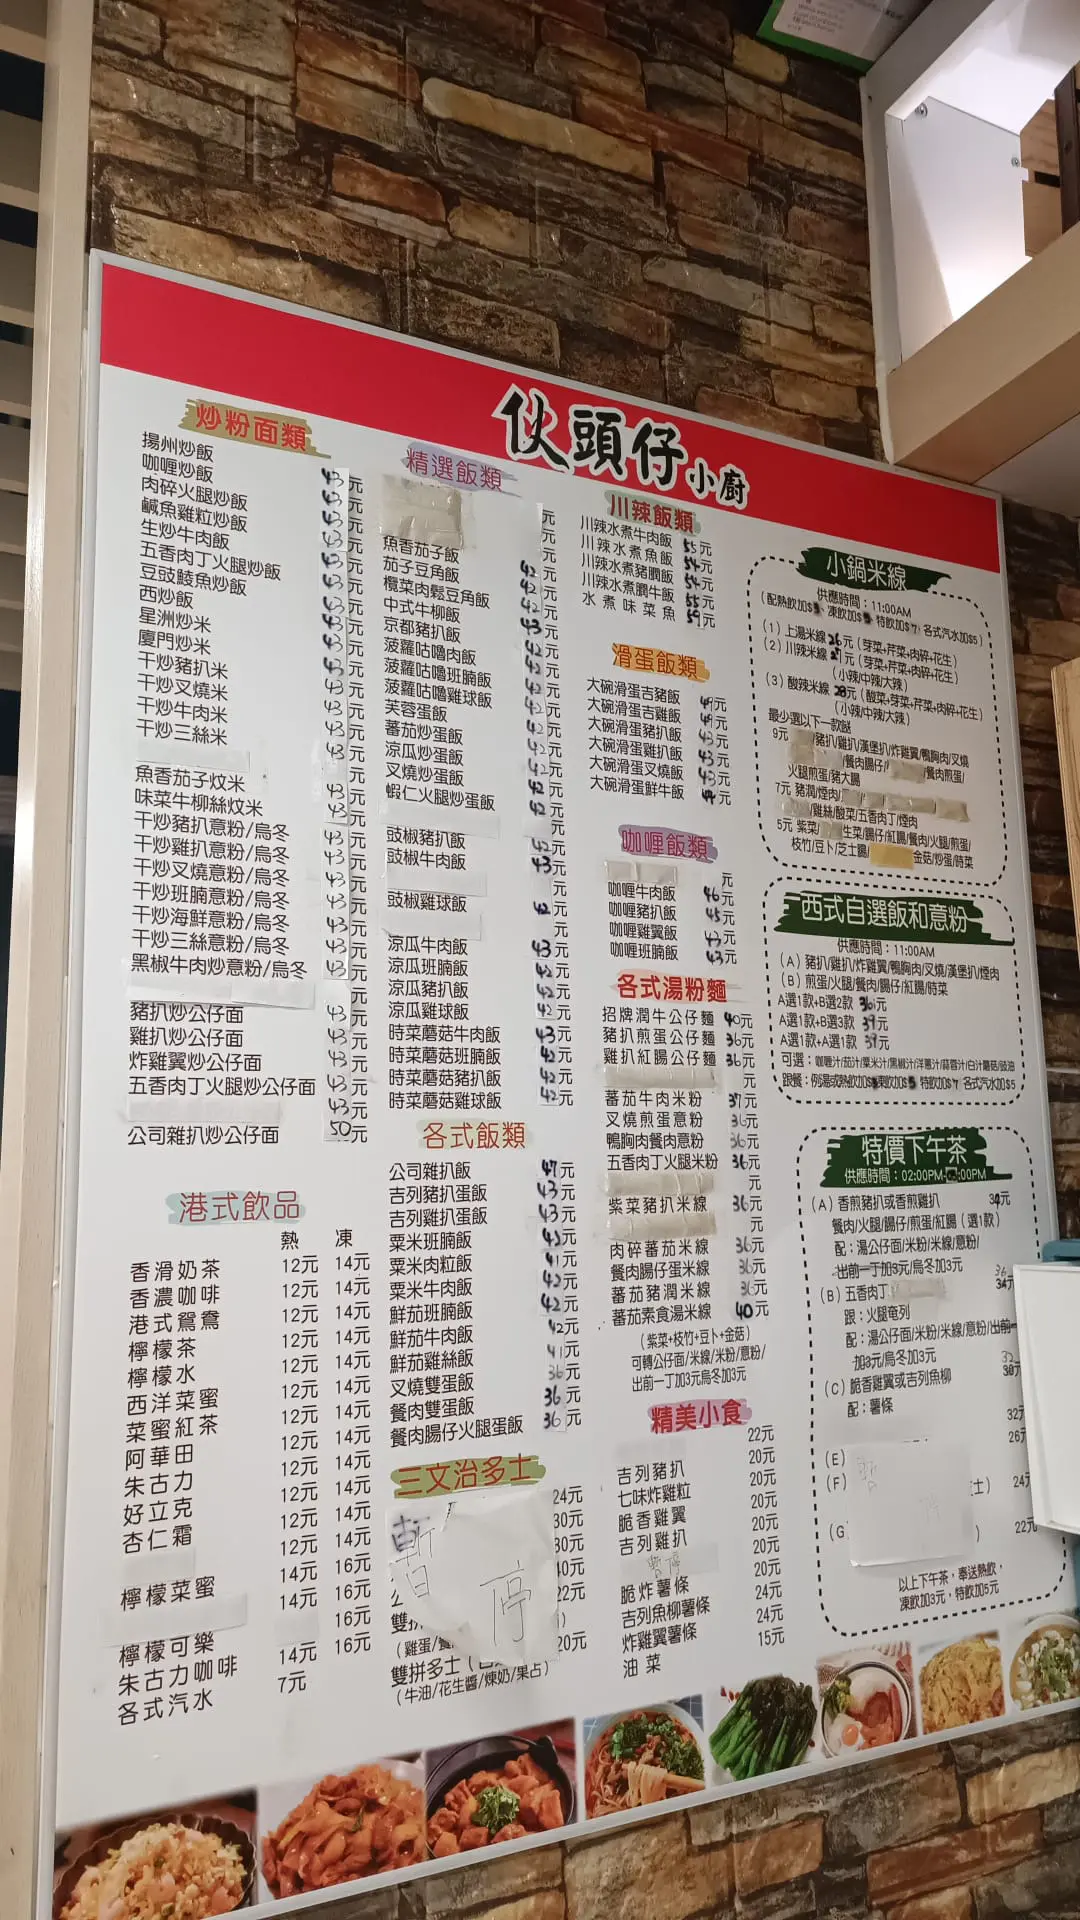 伙頭仔小廚
炒粉面類
揚州炒飯 43元
咖喱炒飯 43元
肉碎火腿炒飯 43元
鹹魚雞粒炒飯 43元
生炒牛肉飯 43元
五香肉丁火腿炒飯 43元
豆豉鯪魚炒飯 43元
西炒飯 43元
星洲炒米 43元
廈門炒米 43元
干炒豬扒米 43元
干炒叉燒米 43元
干炒牛肉米 43元
干炒三絲米 43元
元
魚香茄子炆米 43元
味菜牛柳絲炆米 43元
干炒豬扒意粉/烏冬 43元
干炒雞扒意粉/烏冬 43元
干炒叉燒意粉/烏冬 43元
干炒班腩意粉/烏冬 43元
干炒海鮮意粉/烏冬 43元
干炒三絲意粉/烏冬 43元
黑椒牛肉炒意粉/烏冬 43元
元
豬扒炒公仔面 43元
雞扒炒公仔面 43元
炸雞翼炒公仔面 43元
五香肉丁火腿炒公仔面 43元
43元
公司雜扒炒公仔面 50元
港式飲品
熱 凍
香滑奶茶 12元 14元
香濃咖啡 12元 14元
港式鴛鴦 12元 14元
檸檬茶 12元 14元
檸檬水 12元 14元
西洋菜蜜 12元 14元
菜蜜紅茶 12元 14元
阿華田 12元 14元
朱古力 12元 14元
好立克 12元 14元
杏仁霜 12元 14元
14元 16元
檸檬菜蜜 14元 16元
16元
檸檬可樂 14元 16元
朱古力咖啡 7元
各式汽水
精選飯類
元
元
魚香茄子飯
茄子豆角飯 42元
欖菜肉鬆豆角飯 42元
中式牛柳飯 42元
京都豬扒飯 43元
菠蘿咕嚕肉飯 42元
菠蘿咕嚕班腩飯 42元
菠蘿咕嚕雞球飯 42元
芙蓉蛋飯 42元
蕃茄炒蛋飯 42元
涼瓜炒蛋飯 42元
叉燒炒蛋飯 42元
蝦仁火腿炒蛋飯 42元
元
豉椒豬扒飯 42元
豉椒牛肉飯 43元
元
豉椒雞球飯 42元
元
涼瓜牛肉飯 43元
涼瓜班腩飯 42元
涼瓜豬扒飯 42元
涼瓜雞球飯 42元
時菜蘑菇牛肉飯 43元
時菜蘑菇班腩飯 42元
時菜蘑菇豬扒飯 42元
時菜蘑菇雞球飯 42元
各式飯類
公司雜扒飯 47元
吉列豬扒蛋飯 43元
吉列雞扒蛋飯 43元
粟米班腩飯 43元
粟米肉粒飯 41元
粟米牛肉飯 42元
鮮茄班腩飯 42元
鮮茄牛肉飯 42元
鮮茄雞絲飯 41元
叉燒雙蛋飯 36元
餐肉雙蛋飯 36元
餐肉腸仔火腿蛋飯 36元
三文治多士
暫停
24元
30元
30元
40元
22元
雙拼
(雞蛋/餐
20元
雙拼多士
(牛油/花生醬/煉奶/果占)
川辣飯類
川辣水煮牛肉飯 55元
川辣水煮魚飯 54元
川辣水煮豬膶飯 54元
川辣水煮膶牛飯 55元
水煮味菜魚 59元
滑蛋飯類
大碗滑蛋吉豬飯 44元
大碗滑蛋吉雞飯 44元
大碗滑蛋豬扒飯 43元
大碗滑蛋雞扒飯 43元
大碗滑蛋叉燒飯 43元
大碗滑蛋鮮牛飯 44元
咖喱飯類
元
咖喱牛肉飯 46元
咖喱豬扒飯 45元
咖喱雞翼飯 43元
咖喱班腩飯 43元
各式湯粉麵
招牌潤牛公仔麵 40元
豬扒煎蛋公仔麵 36元
雞扒紅腸公仔麵 36元
元
蕃茄牛肉米粉 37元
叉燒煎蛋意粉 36元
鴨胸肉餐肉意粉 36元
五香肉丁火腿米粉 36元
元
紫菜豬扒米線 36元
元
肉碎蕃茄米線 36元
餐肉腸仔蛋米線 36元
蕃茄豬潤米線 36元
蕃茄素食湯米線 40元
(紫菜+枝竹+豆卜+金菇)
可轉公仔面/米線/米粉/意粉/
出前一丁加3元烏冬加3元
精美小食
22元
吉列豬扒 20元
七味炸雞粒 20元
脆香雞翼 20元
吉列雞扒 20元
暫停 20元
脆炸薯條 20元
吉列魚柳薯條 24元
炸雞翼薯條 24元
油菜 15元
小鍋米線
供應時間：11:00AM
(配熱飲加$3、凍飲加$5 特飲加$7，各式汽水加$5)
(1) 上湯米線 26元 (芽菜+芹菜+肉碎+花生)
(2) 川辣米線 27元 (芽菜+芹菜+肉碎+花生)
(小辣/中辣/大辣)
(3) 酸辣米線 28元 (酸菜+芽菜+芹菜+肉碎+花生)
(小辣/中辣/大辣)
最少選以下一款餸
9元 /豬扒/雞扒/漢堡扒/炸雞翼/鴨胸肉/叉燒
/餐肉腸仔/ /餐肉煎蛋/
火腿煎蛋/豬大腸
7元 豬潤/煙肉/
/雞絲/酸菜/五香肉丁/煙肉
5元 紫菜/ 生菜/腸仔/紅腸/餐肉/火腿/煎蛋/
枝竹/豆卜/芝士腸/ 金菇/炒蛋/時菜
西式自選飯和意粉
供應時間：11:00AM
(A) 豬扒/雞扒/炸雞翼/鴨胸肉/叉燒/漢堡扒/煙肉
(B) 煎蛋/火腿/餐肉/腸仔/紅腸/時菜
A選1款+B選2款 36元
A選1款+B選3款 39元
A選1款+A選1款 39元
可選：咖喱汁/茄汁/粟米汁/黑椒汁/洋蔥汁/蒜蓉汁/白汁蘑菇/豉油
跟餐：例湯或熱飲加$3凍飲加$5 特飲加$7 各式汽水加$5
特價下午茶
供應時間：02:00PM- :00PM
(A) 香煎豬扒或香煎雞扒
餐肉/火腿/腸仔/煎蛋/紅腸 (選1款)
配：湯公仔面/米粉/米線/意粉/
出前一丁加3元/烏冬加3元
(B) 五香肉丁 36
34元
跟：火腿奄列
配：湯公仔面/米粉/米線/意粉/出前一
加3元/烏冬加3元
(C) 脆香雞翼或吉列魚柳 30元
配：薯條
32元
(E) 26元
(F) 士) 24元
(G ) 22元
以上下午茶，奉送熱飲，
凍飲加3元，特飲加5元